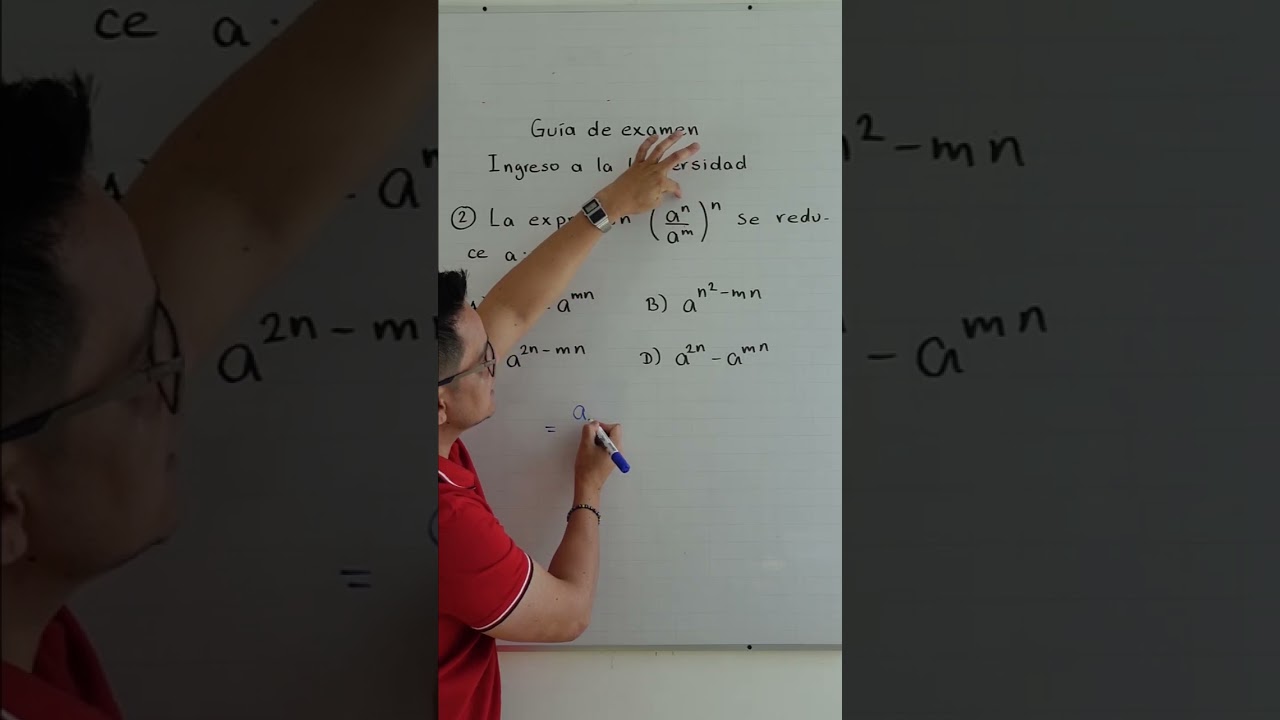 Guía de examen
Ingreso a la
② La (aⁿ/aᵐ)ⁿ se redu-
ce a
- a^mn B) a^(n²-mn)
a^(2n-mn) D) a^2n - a^mn
= a